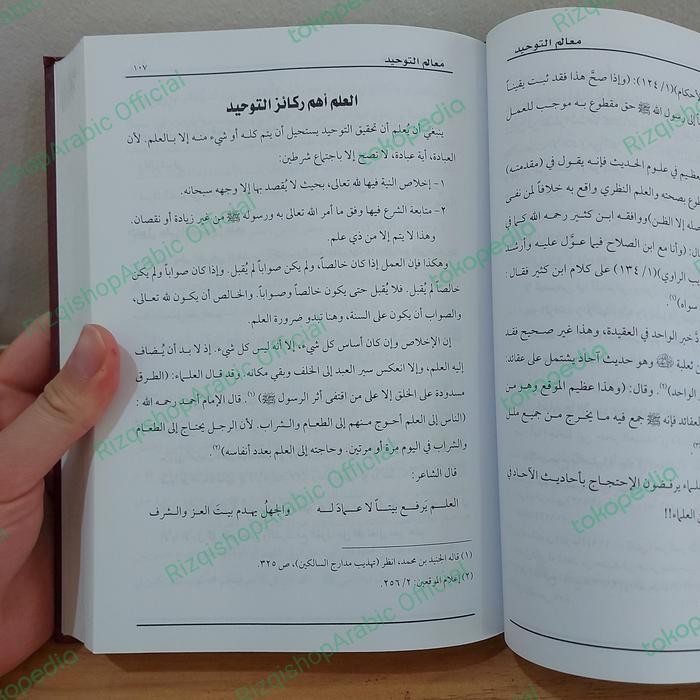 معالم التوحيد
١٠٧
العلم أهم ركائز التوحيد
ينبغي أن يُعلم أن تحقيق التوحيد يستحيل أن يتم كله أو شيء منه إلا بالعلم. لأن
العبادة، أية عبادة، لا تصح إلا باجتماع شرطين:
١- إخلاص النية فيها لله تعالى، بحيث لا يُقصد بها إلا وجهه سبحانه.
٢- متابعة الشرع فيها وفق ما أمر الله تعالى به ورسوله ﷺ من غير زيادة أو نقصان.
وهذا لا يتم إلا من ذي علم.
وهكذا فإن العمل إذا كان خالصاً، ولم يكن صواباً لم يُقبل. وإذا كان صواباً ولم يكن
خالصاً لم يُقبل. فلا يُقبل حتى يكون خالصاً وصواباً. والخالص أن يكون لله تعالى،
والصواب أن يكون على السنة، وهنا تبدو ضرورة العلم.
إن الإخلاص وإن كان أساس كل شيء، إلا أنه ليس كل شيء. إذ لا بد أن يُضاف
إليه العلم، وإلا انعكس سير العبد إلى الخلف وبقي مكانه. وقد قال العلماء: (الطرق
مسدودة على الخلق إلا على من اقتفى أثر الرسول ﷺ) (١). قال الإمام أحمد رحمه الله :
(الناس إلى العلم أحوج منهم إلى الطعام والشراب. لأن الرجل يحتاج إلى الطعام
والشراب في اليوم مرة أو مرتين. وحاجته إلى العلم بعدد أنفاسه)(٢).
قال الشاعر:
العلم يَرفع بيتاً لا عمادَ له والجهلُ يهدم بيتَ العز والشرف
(١) قاله الجنيد بن محمد، انظر (تهذيب مدارج السالكين)، ص ٣٢٥.
(٢) إعلام الموقعين: ٢/ ٢٥٦.
معالم التوحيد
لأحكام)(١/ ١٢٤): (وإذا صحَّ هذا فقد ثبت يقيناً
إلى رسول الله ﷺ حق مقطوع به موجب للعمل
عظيم في علوم الحديث فإنه يقول في (مقدمته)
طوع بصحته والعلم النظري واقع به خلافاً لمن نفى
صله إلا الظن) ووافقه ابن كثير رحمه الله كما في
ال: (وأنا مع ابن الصلاح فيما عوَّل عليه وأرشد
يب الراوي)(١/ ١٣٤) على كلام ابن كثير فقال :
سواه)(١).
خبر الواحد في العقيدة، وهذا غير صحيح فقد
ن ثعلبة وهو حديث آحاد يشتمل على عقائد:
الواحد)(٢). وقال: (وهذا عظيم الموقع وهو من
العقائد فإنه ﷺ جمع فيه ما يخرج من جميع ملل
لماء يرفضون الإحتجاج بأحاديث الآحاد في
العلماء!!
RizqishopArabic Official
tokopedia